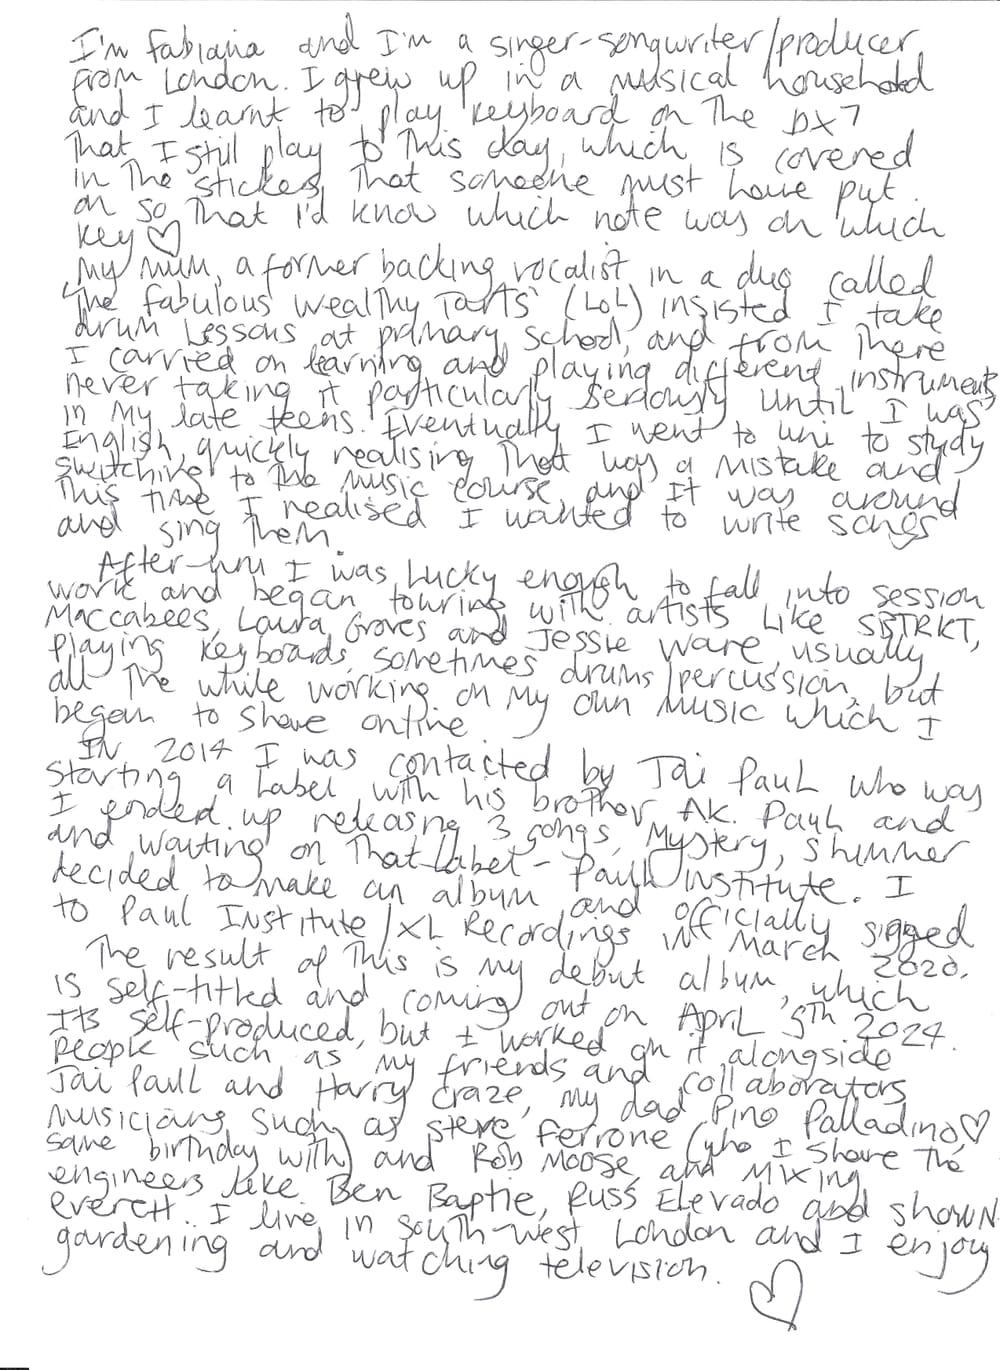 I'm Fabiana and I'm a singer-songwriter/producer
from London. I grew up in a musical household
and I learnt to play keyboard on the DX7
that I still play to this day, which is covered
in the stickers that someone must have put
on so that I'd know which note was on which
key ♡
My mum, a former backing vocalist in a duo called
'The Fabulous Wealthy Tarts' (LOL) insisted I take
drum lessons at primary school, and from there
I carried on learning and playing different instruments,
never taking it particularly seriously until I was
in my late teens. Eventually I went to uni to study
English, quickly realising that was a mistake and
switching to the music course, and it was around
this time I realised I wanted to write songs
and sing them.
After uni I was lucky enough to fall into session
work and began touring with artists like SBTRKT,
Maccabees, Laura Groves and Jessie Ware, usually
playing keyboards, sometimes drums/percussion, but
all the while working on my own music which I
began to share online.
In 2014 I was contacted by Jai Paul who was
starting a label with his brother, A.K. Paul and
I ended up releasing 3 songs, Mystery, Shimmer
and Waiting on that label - Paul Institute. I
decided to make an album and officially signed
to Paul Institute/XL Recordings in March 2020.
The result of this is my debut album, which
is self-titled and coming out on April 5th 2024.
Its self-produced, but I worked on it alongside
people such as my friends and collaborators
Jai Paul and Harry Craze, my dad Pino Palladino ♡
musicians such as Steve Ferrone (who I share the
same birthday with) and Rob Moose, and mixing
engineers like Ben Baptie, Russ Elevado and Shawn
Everett. I live in South-West London and I enjoy
gardening and watching television. ♡